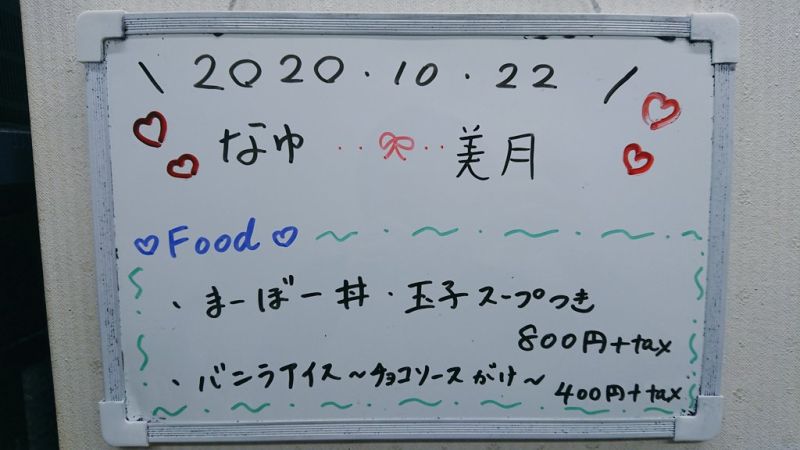 \ 2020.10.22 /
なゆ ‥ ‥ 美月
Food
・まーぼー丼・玉子スープつき
800円+tax
・バニラアイス〜チョコソースがけ〜
400円+tax